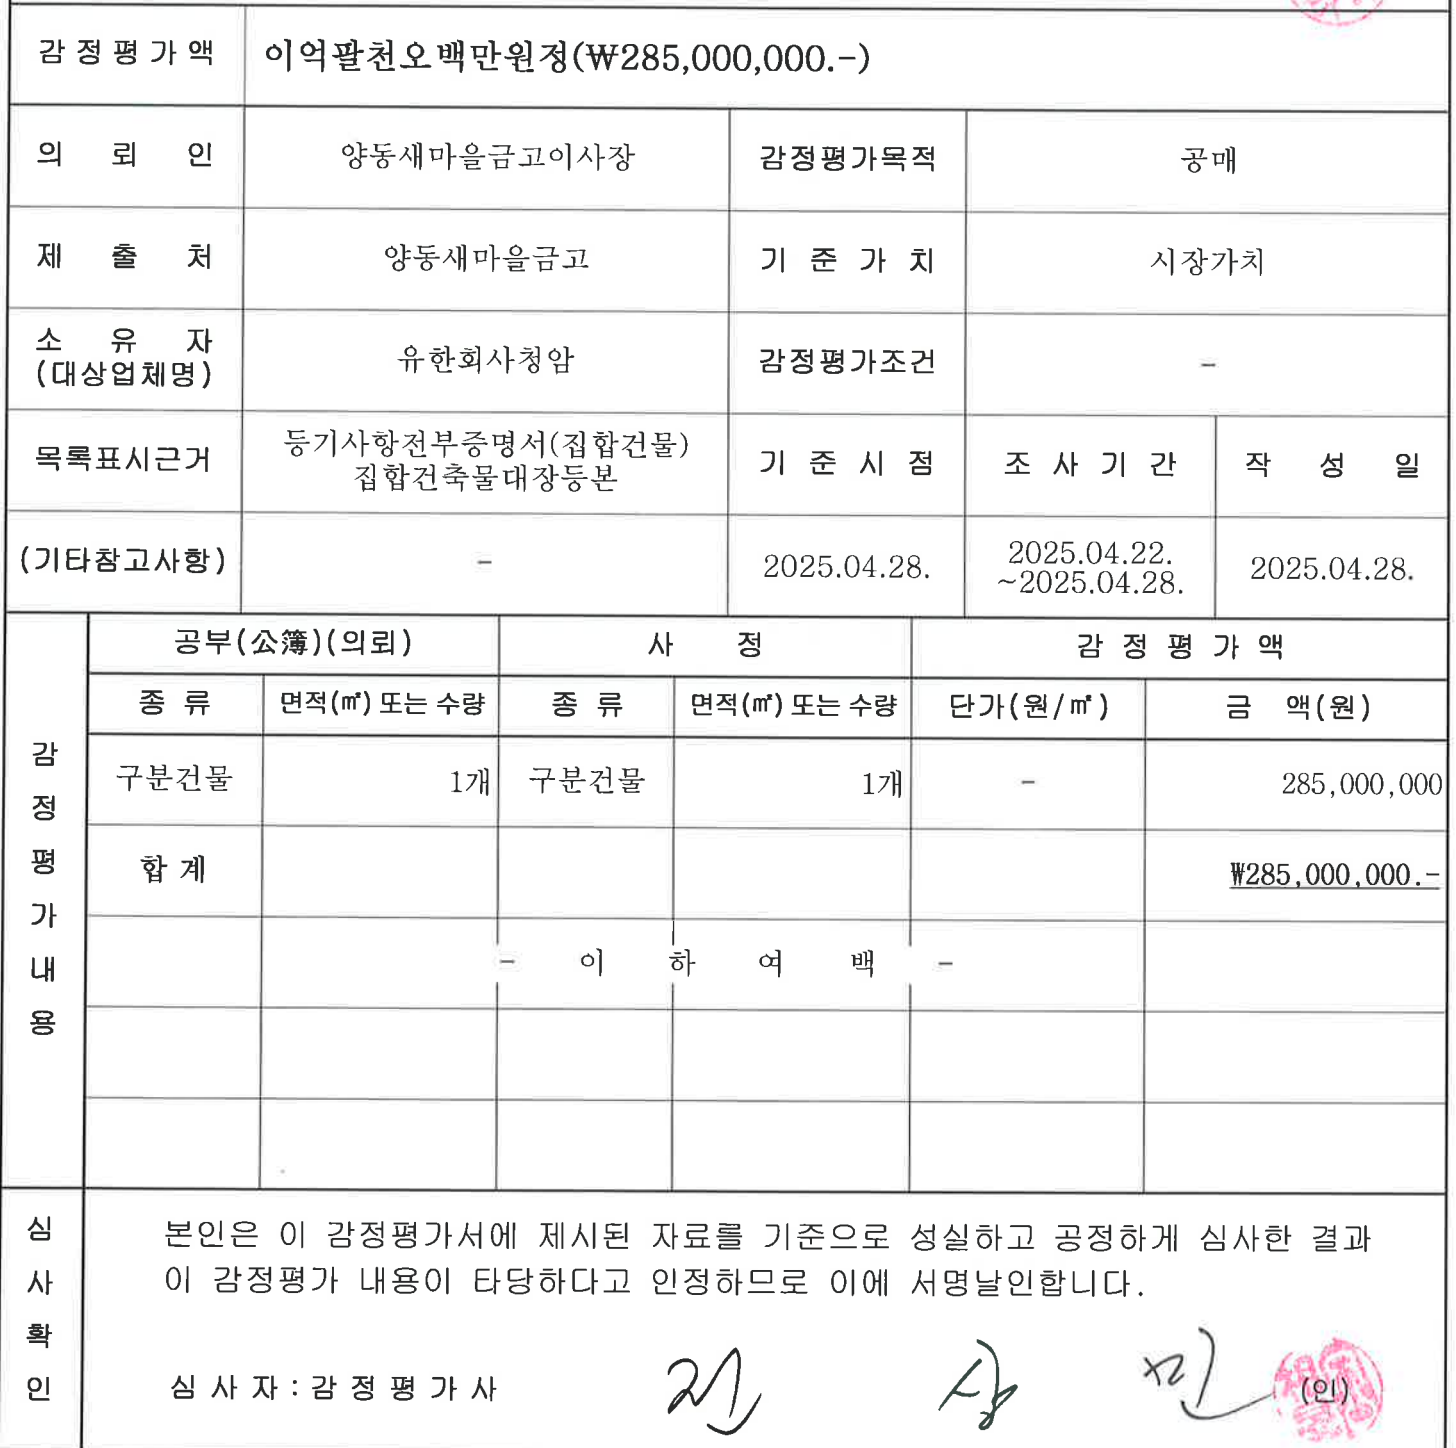 감정평가액 이억팔천오백만원정(₩285,000,000.-)
의 뢰 인 양동새마을금고이사장 감정평가목적 공매
제 출 처 양동새마을금고 기 준 가 치 시장가치
소 유 자
(대상업체명) 유한회사청암 감정평가조건 -
목록표시근거 등기사항전부증명서(집합건물)
집합건축물대장등본 기 준 시 점 조 사 기 간 작 성 일
(기타참고사항) - 2025.04.28. 2025.04.22.
~2025.04.28. 2025.04.28.
감정평가내용
공부(公簿)(의뢰) 사 정 감 정 평 가 액
종 류 면적(㎡) 또는 수량 종 류 면적(㎡) 또는 수량 단가(원/㎡) 금 액(원)
구분건물 1개 구분건물 1개 - 285,000,000
합 계 ₩285,000,000.-
- 이 하 여 백 -
심사확인
본인은 이 감정평가서에 제시된 자료를 기준으로 성실하고 공정하게 심사한 결과
이 감정평가 내용이 타당하다고 인정하므로 이에 서명날인합니다.
심 사 자 : 감 정 평 가 사 (인)